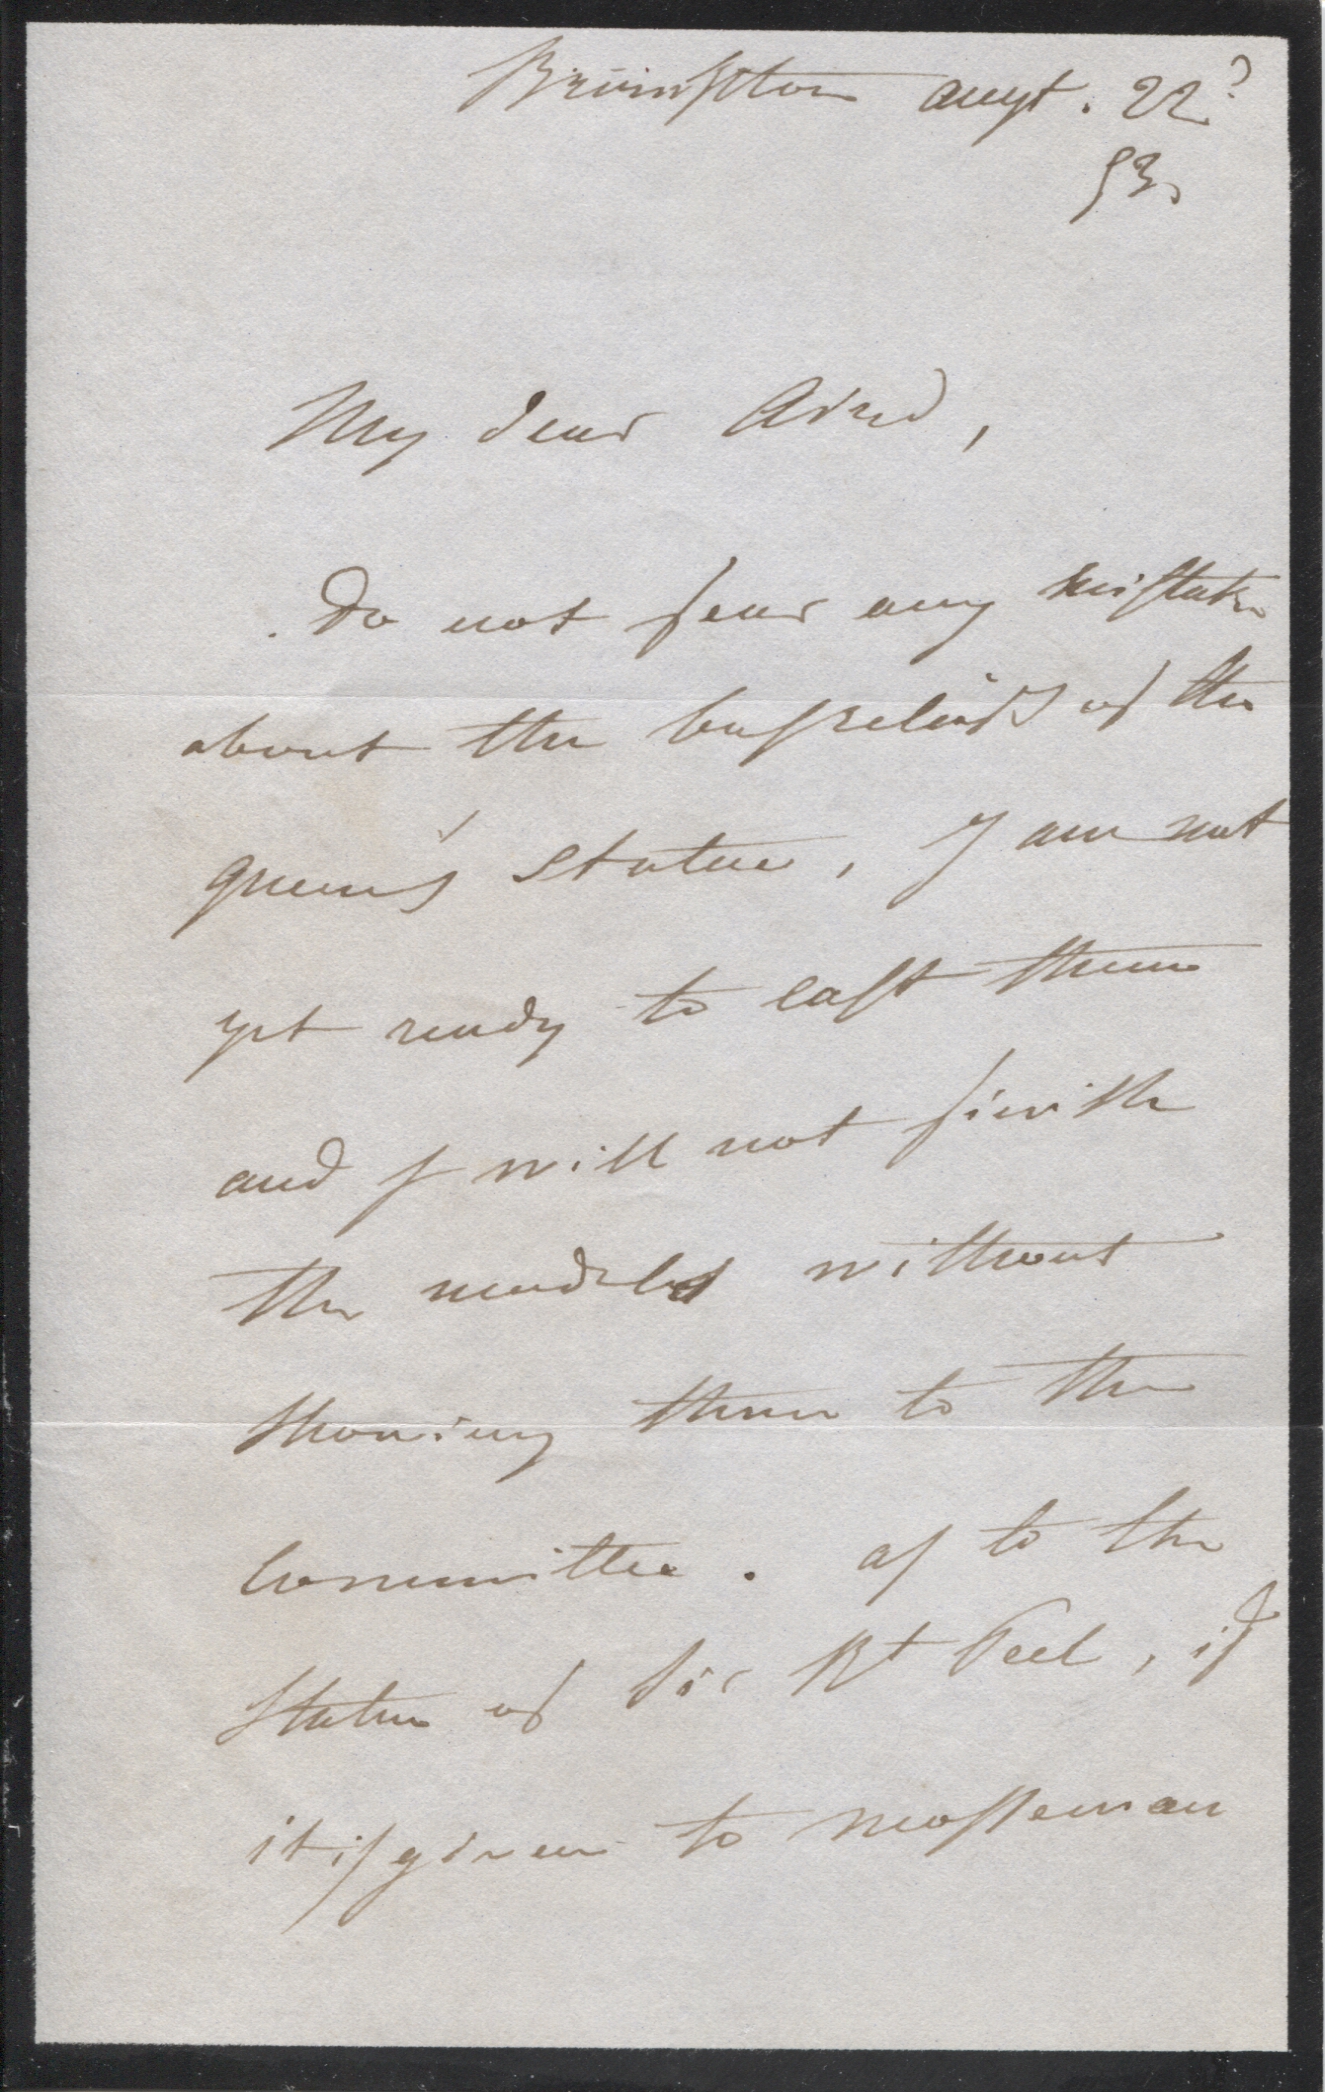 Brompton augt. 22d
53.
My dear Aird,
Do not fear any mistake
about the basreliefs of the
queen's statue, I am not
yet ready to cast them
and I will not finish
the models without
showing them to the
Committee. as to the
statue of Sir Rt Peel, if
it is given to mossman